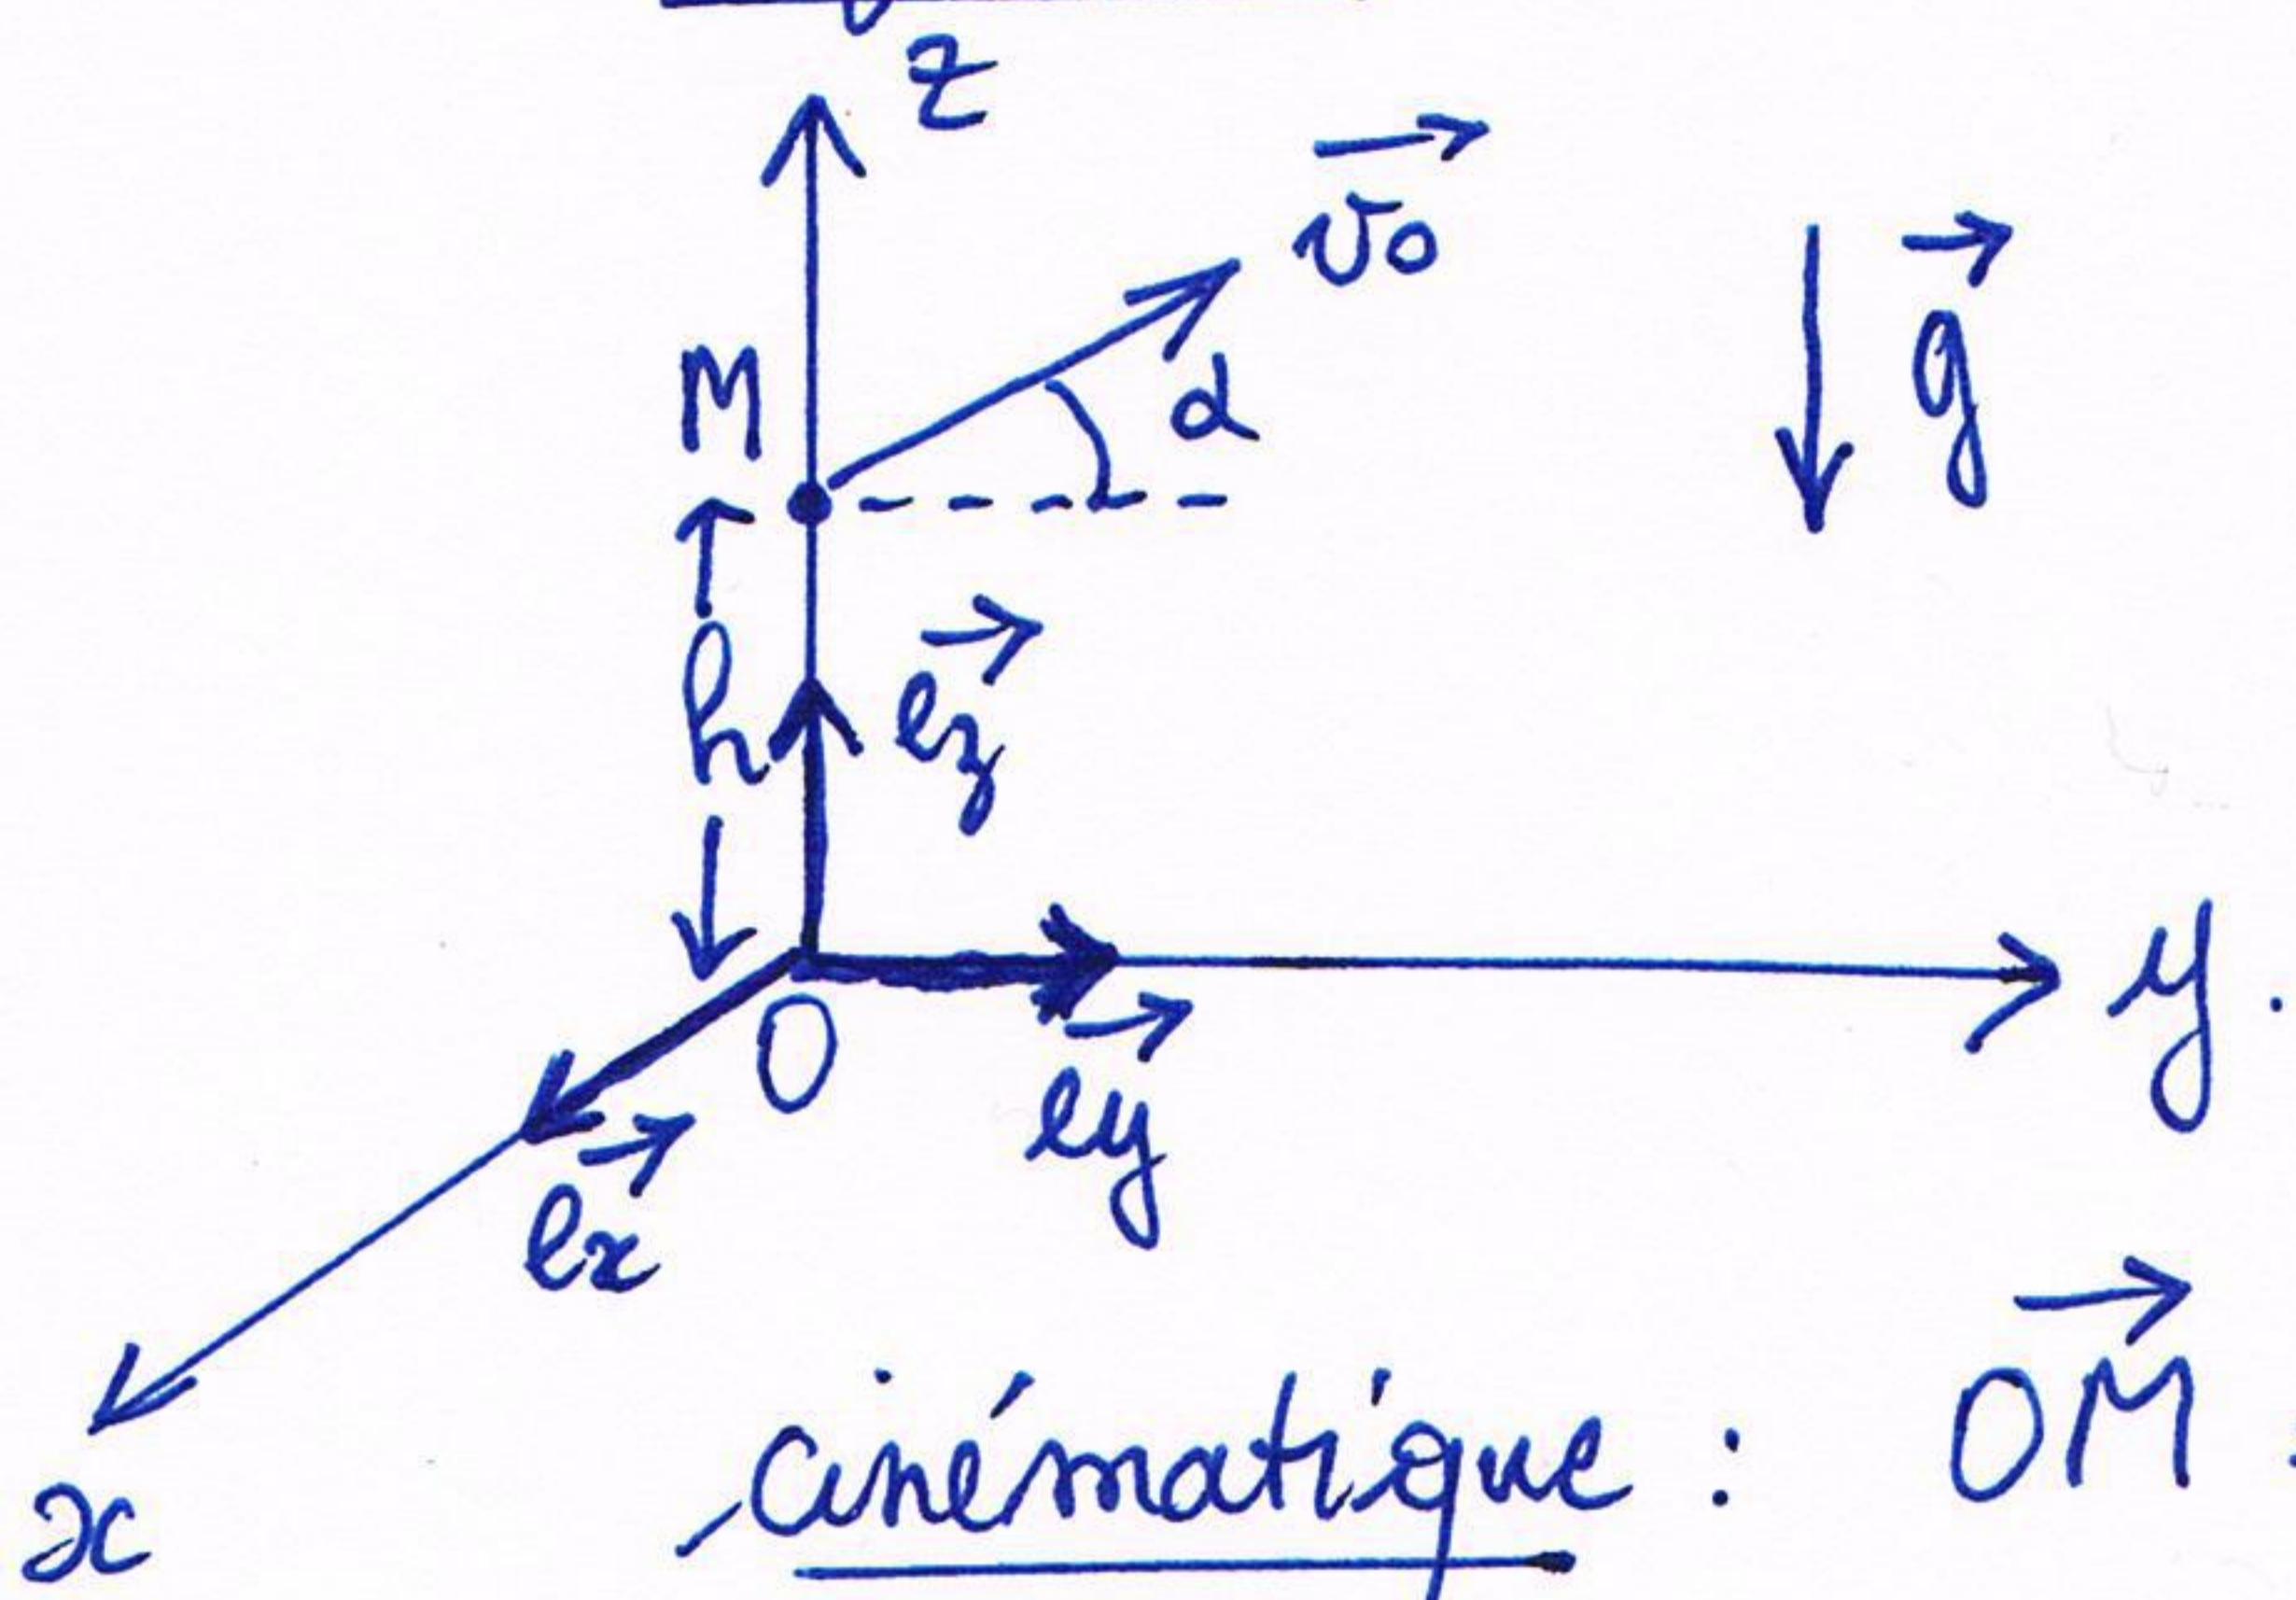 z
v⃗o
g⃗
M
α
h
e⃗z
y.
O
e⃗y
e⃗x
x
cinématique : O⃗M⃗